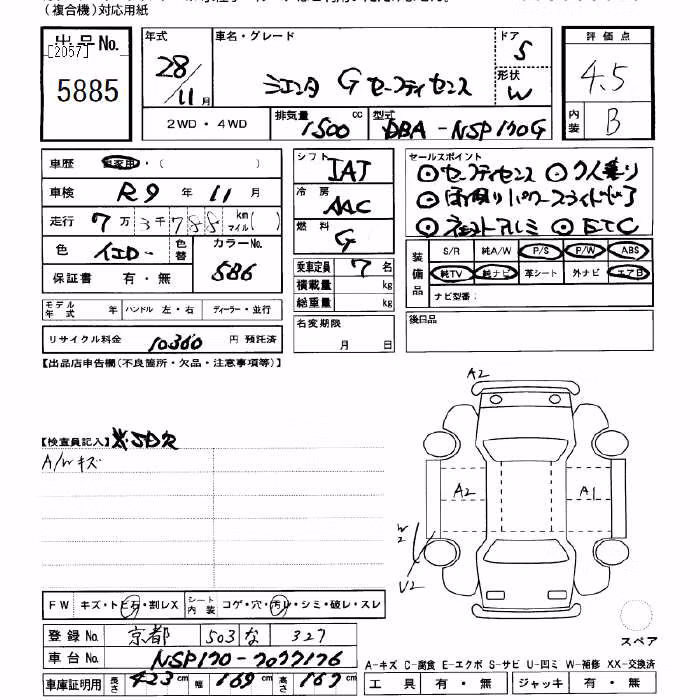 (複合機)対応用紙
出品No.
[2057]
5885
年式
28/11月
車名・グレード
シエンタ G セーフティセンス
ドア
5
形状
W
評価点
4.5
内装
B
2WD・4WD
排気量
1500 cc
型式
DBA-NSP170G
車歴
自家用・( )
車検
R9 年 11 月
走行
7万3千788 km マイル( )
色
イエロー
色替
カラーNo.
586
保証書 有・無
モデル年式 年
ハンドル 左・右
ディーラー・並行
リサイクル料金 10360 円 預託済
シフト
IAT
冷房
AAC
燃料
G
乗車定員 7 名
積載量 kg
総重量 kg
名変期限
月 日
セールスポイント
◎セーフティセンス ◎7人乗り
◎両側パワースライドドア
◎ ETC
装備品
S/R 純A/W P/S P/W ABS
純TV 純ナビ 革シート 外ナビ エアB
ナビ型番:
後日品
【出品店申告欄(不良箇所・欠品・注意事項等)】
【検査員記入】
A/Wキズ
A2
A2
A1
W2
U2
スペア
FW キズ・トビ石・割レX
シート内装 コゲ・穴・汚レ・シミ・破レ・スレ
登録No. 京都 503 な 327
車台No. NSP170-7077176
車庫証明用 長さ 423 cm 幅 169 cm 高さ 167 cm
A-キズ C-腐食 E-エクボ S-サビ U-凹ミ W-補修 XX-交換済
工具 有・無 ジャッキ 有・無